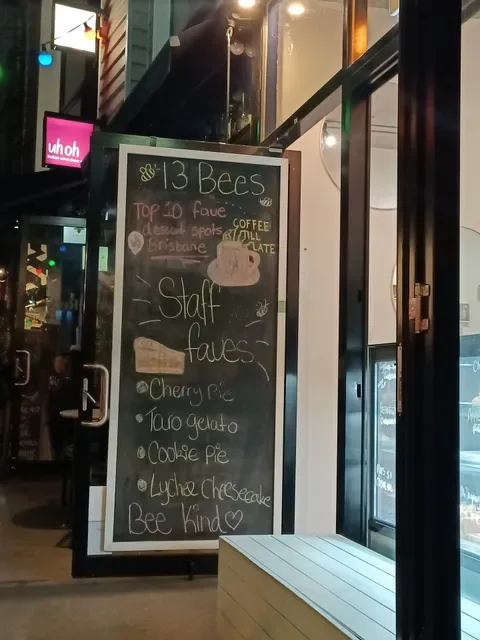 uh oh
13 Bees
Top 10 fave
dessert spots
Brisbane
COFFEE
TILL
LATE
Staff
faves
Cherry Pie
Taro gelato
Cookie Pie
Lychee Cheesecake
Bee Kind♡